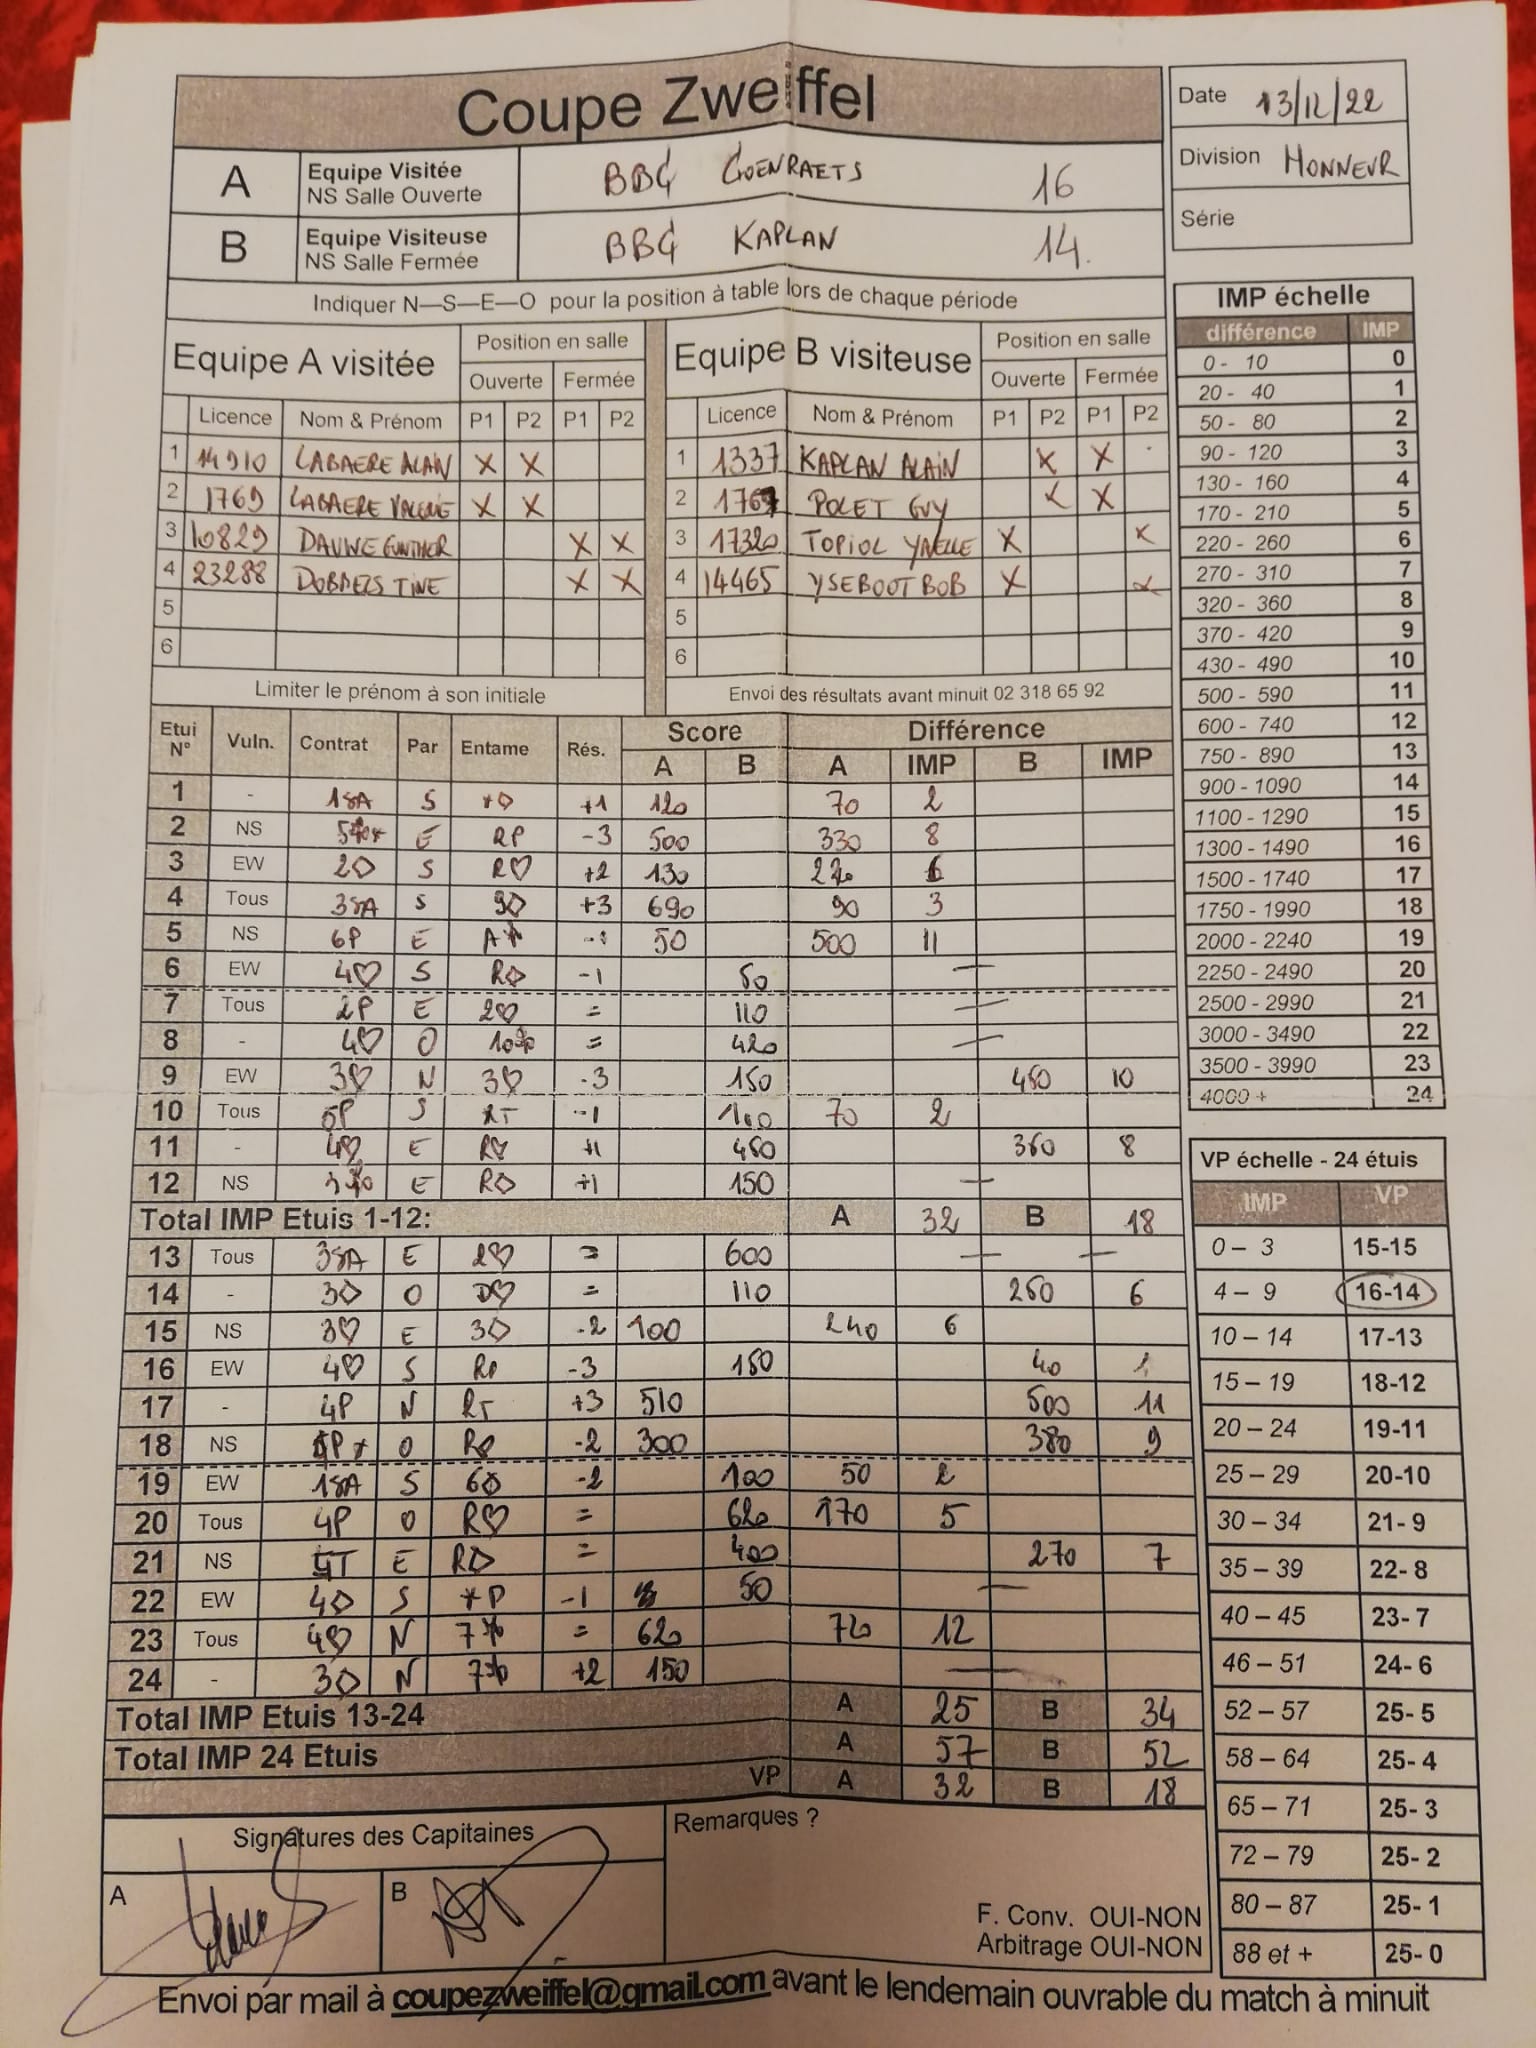 Coupe Zweiffel
Date 13/12/22
Division HONNEUR
Série
A Equipe Visitée NS Salle Ouverte BBC COENRAETS 16
B Equipe Visiteuse NS Salle Fermée BBC KAPLAN 14
Indiquer N—S—E—O pour la position à table lors de chaque période
Equipe A visitée Position en salle
Ouverte Fermée
Licence Nom & Prénom P1 P2 P1 P2
1 14910 LABAERE ALAIN X X
2 1769 LABAERE X X
3 10829 DAUWE GUNTHER X X
4 23288 DOBBELS TINE X X
5
6
Limiter le prénom à son initiale
Equipe B visiteuse Position en salle
Ouverte Fermée
Licence Nom & Prénom P1 P2 P1 P2
1 1337 KAPLAN ALAIN X X
2 POLET GUY X X
3 17320 TOPIOL YAELLE X X
4 14465 YSEBOOT BOB X X
5
6
Envoi des résultats avant minuit 02 318 65 92
Etui N° Vuln. Contrat Par Entame Rés. Score Différence
A B A IMP B IMP
1 - 1SA S +1 120 70 2
2 NS E RP -3 500 330 8
3 EW 2♢ S R♡ +2 130 6
4 Tous 3SA S 9♢ +3 690 90 3
5 NS 6P E -1 50 500 11
6 EW 4♡ S R♢ -1 50 —
7 Tous 2P E 2♡ = 110 —
8 - 4♡ O = 420 —
9 EW 3♡ N 3♡ -3 150 450 10
10 Tous 5P S RT -1 100 70 2
11 - 4♡ E R♡ +1 450 360 8
12 NS E R♢ +1 150 —
Total IMP Etuis 1-12: A 32 B 18
13 Tous 3SA E 2♡ = 600 — —
14 - 3♢ O D♡ = 110 260 6
15 NS 3♡ E 3♢ -2 100 240 6
16 EW 4♡ S -3 150 40 1
17 - 4P N RT +3 510 500 11
18 NS O -2 300 380 9
19 EW 1SA S 6♢ -2 100 50 2
20 Tous 4P O R♡ = 620 170 5
21 NS E R♢ = 400 270 7
22 EW 4♢ S *P -1 50 —
23 Tous 4♡ N = 620 720 12
24 - 3♢ N +2 150 —
Total IMP Etuis 13-24 A 25 B 34
Total IMP 24 Etuis A 57 B 52
VP A 32 B 18
Signatures des Capitaines
A
B
Remarques ?
F. Conv. OUI-NON
Arbitrage OUI-NON
IMP échelle
différence IMP
0 - 10 0
20 - 40 1
50 - 80 2
90 - 120 3
130 - 160 4
170 - 210 5
220 - 260 6
270 - 310 7
320 - 360 8
370 - 420 9
430 - 490 10
500 - 590 11
600 - 740 12
750 - 890 13
900 - 1090 14
1100 - 1290 15
1300 - 1490 16
1500 - 1740 17
1750 - 1990 18
2000 - 2240 19
2250 - 2490 20
2500 - 2990 21
3000 - 3490 22
3500 - 3990 23
4000 + 24
VP échelle - 24 étuis
IMP VP
0 – 3 15-15
4 – 9 16-14
10 – 14 17-13
15 – 19 18-12
20 – 24 19-11
25 – 29 20-10
30 – 34 21- 9
35 – 39 22- 8
40 – 45 23- 7
46 – 51 24- 6
52 – 57 25- 5
58 – 64 25- 4
65 – 71 25- 3
72 – 79 25- 2
80 – 87 25- 1
88 et + 25- 0
Envoi par mail à coupezweiffel@gmail.com avant le lendemain ouvrable du match à minuit